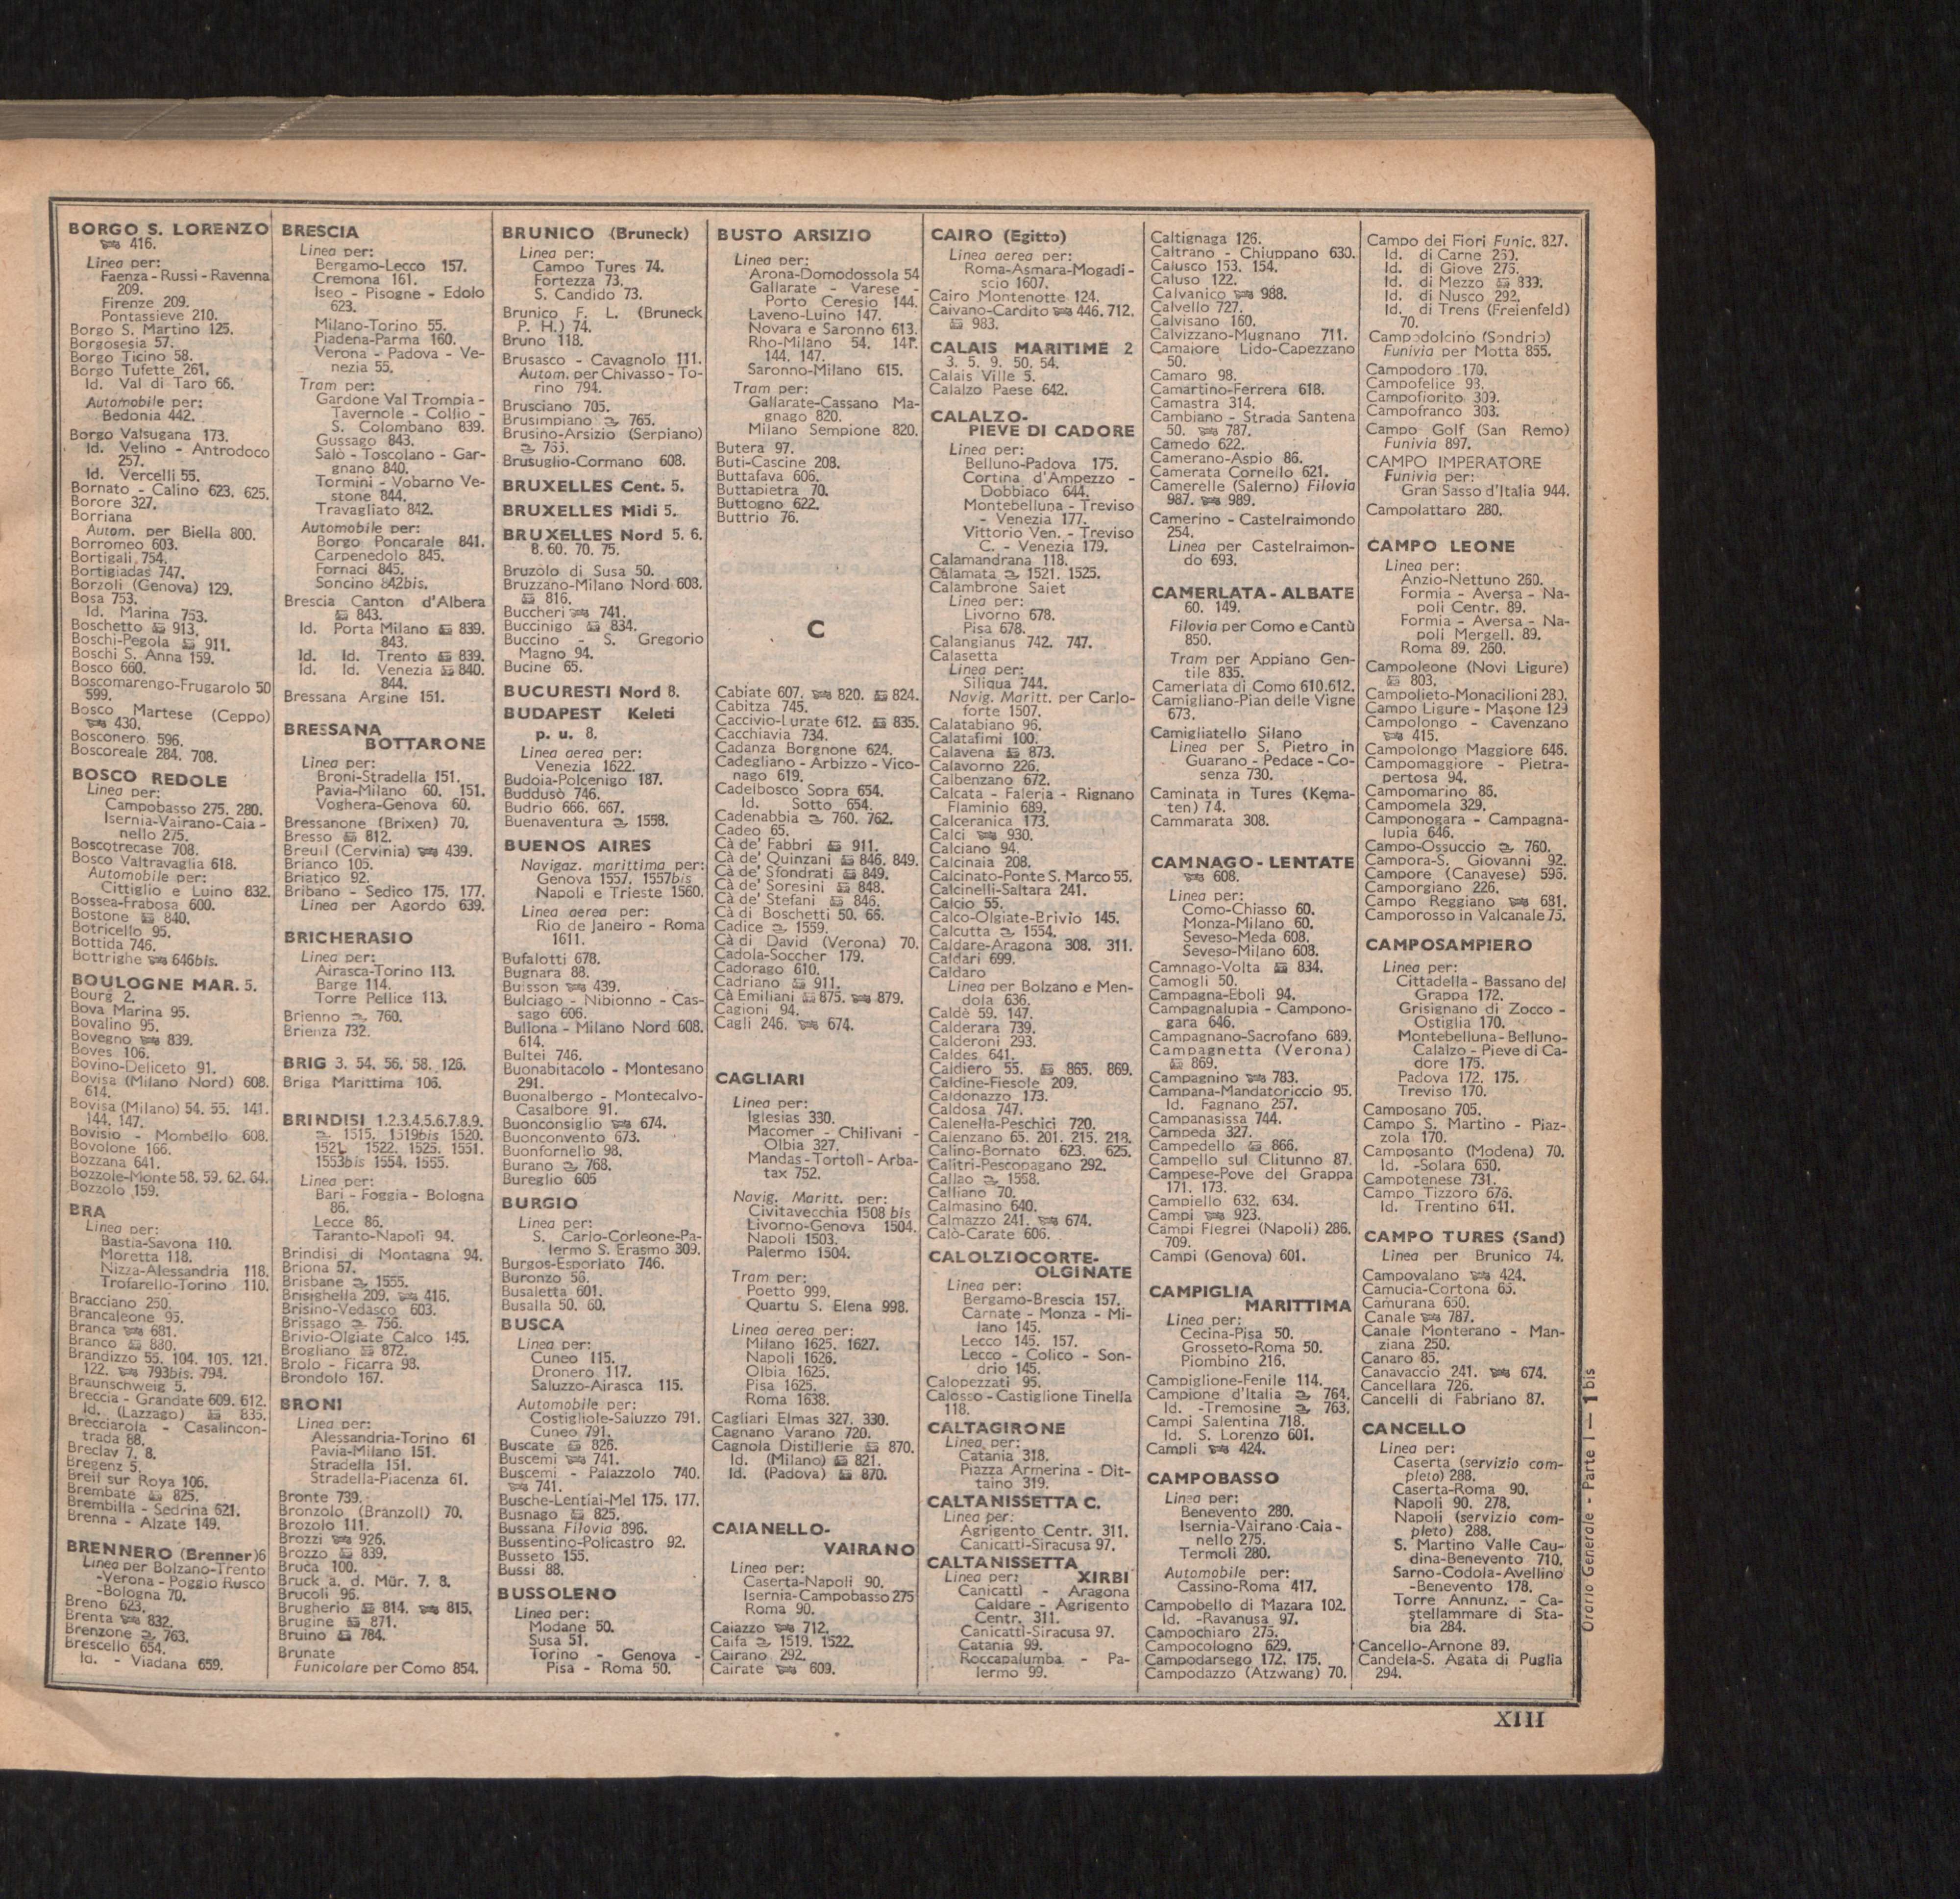 BORGO S. LORENZO
416.
Linea per:
Faenza - Russi - Ravenna
209.
Firenze 209.
Pontassieve 210.
Borgo S. Martino 125.
Borgosesia 57.
Borgo Ticino 58.
Borgo Tufette 261.
Id. Val di Taro 66.
Automobile per:
Bedonia 442.
Borgo Valsugana 173.
Id. Velino - Antrodoco
257.
Id. Vercelli 55.
Bornato - Calino 623. 625.
Borore 327.
Borriana
Autom. per Biella 800.
Borromeo 603.
Bortigali 754.
Bortigiadas 747.
Borzoli (Genova) 129.
Bosa 753.
Id. Marina 753.
Boschetto 913.
Boschi-Pegola 911.
Boschi S. Anna 159.
Bosco 660.
Boscomarengo-Frugarolo 50
599.
Bosco Martese (Ceppo)
430.
Bosconero 596.
Boscoreale 284. 708.
BOSCO REDOLE
Linea per:
Campobasso 275. 280.
Isernia-Vairano-Caia -
nello 275.
Boscotrecase 708.
Bosco Valtravaglia 618.
Automobile per:
Cittiglio e Luino 832.
Bossea-Frabosa 600.
Bostone 840.
Botricello 95.
Bottida 746.
Bottrighe 646bis.
BOULOGNE MAR. 5.
Bourg 2.
Bova Marina 95.
Bovalino 95.
Bovegno 839.
Boves 106.
Bovino-Deliceto 91.
Bovisa (Milano Nord) 608.
614.
Bovisa (Milano) 54. 55. 141.
144. 147.
Bovisio - Mombello 608.
Bovolone 166.
Bozzana 641.
Bozzole-Monte 58. 59. 62. 64.
Bozzolo 159.
BRA
Linea per:
Bastia-Savona 110.
Moretta 118.
Nizza-Alessandria 118.
Trofarello-Torino 110.
Bracciano 250.
Brancaleone 95.
Branca 681.
Branco 880.
Brandizzo 55. 104. 105. 121.
122. 793bis. 794.
Braunschweig 5.
Breccia - Grandate 609. 612.
Id. (Lazzago) 835.
Brecciarola - Casalincon-
trada 88.
Breclav 7. 8.
Bregenz 5.
Breil sur Roya 106.
Brembate 825.
Brembilla - Sedrina 621.
Brenna - Alzate 149.
BRENNERO (Brenner) 6
Linea per Bolzano-Trento
-Verona - Poggio Rusco
-Bologna 70.
Breno 623.
Brenta 832.
Brenzone 763.
Brescello 654.
Id. - Viadana 659.
BRESCIA
Linea per:
Bergamo-Lecco 157.
Cremona 161.
Iseo - Pisogne - Edolo
623.
Milano-Torino 55.
Piadena-Parma 160.
Verona - Padova - Ve-
nezia 55.
Tram per:
Gardone Val Trompia -
Tavernole - Collio -
S. Colombano 839.
Gussago 843.
Salò - Toscolano - Gar-
gnano 840.
Tormini - Vobarno Ve-
stone 844.
Travagliato 842.
Automobile per:
Borgo Poncarale 841.
Carpenedolo 845.
Fornaci 845.
Soncino 842bis.
Brescia Canton d'Albera
843.
Id. Porta Milano 839.
843.
Id. Id. Trento 839.
Id. Id. Venezia 840.
844.
Bressana Argine 151.
BRESSANA
BOTTARONE
Linea per:
Broni-Stradella 151.
Pavia-Milano 60. 151.
Voghera-Genova 60.
Bressanone (Brixen) 70.
Bresso 812.
Breuil (Cervinia) 439.
Brianco 105.
Briatico 92.
Bribano - Sedico 175. 177.
Linea per Agordo 639.
BRICHERASIO
Linea per:
Airasca-Torino 113.
Barge 114.
Torre Pellice 113.
Brienno 760.
Brienza 732.
BRIG 3. 54. 56. 58. 126.
Briga Marittima 106.
BRINDISI 1.2.3.4.5.6.7.8.9.
1515. 1519bis 1520.
1521. 1522. 1525. 1551.
1553bis 1554. 1555.
Linea per:
Bari - Foggia - Bologna
86.
Lecce 86.
Taranto-Napoli 94.
Brindisi di Montagna 94.
Briona 57.
Brisbane 1555.
Brisighella 209. 416.
Brisino-Vedasco 603.
Brissago 756.
Brivio-Olgiate Calco 145.
Brogliano 872.
Brolo - Ficarra 98.
Brondolo 167.
BRONI
Linea per:
Alessandria-Torino 61
Pavia-Milano 151.
Stradella 151.
Stradella-Piacenza 61.
Bronte 739.
Bronzolo (Branzoll) 70.
Brozolo 111.
Brozzi 926.
Brozzo 839.
Bruca 100.
Bruck a. d. Mür. 7. 8.
Brucoli 96.
Brugherio 814. 815.
Brugine 871.
Bruino 784.
Brunate
Funicolare per Como 854.
BRUNICO (Bruneck)
Linea per:
Campo Tures 74.
Fortezza 73.
S. Candido 73.
Brunico F. L. (Bruneck
P. H.) 74.
Bruno 118.
Brusasco - Cavagnolo 111.
Autom. per Chivasso - To-
rino 794.
Brusciano 705.
Brusimpiano 765.
Brusino-Arsizio (Serpiano)
765.
Brusuglio-Cormano 608.
BRUXELLES Cent. 5.
BRUXELLES Midi 5.
BRUXELLES Nord 5. 6.
8. 60. 70. 75.
Bruzolo di Susa 50.
Bruzzano-Milano Nord 608.
816.
Buccheri 741.
Buccinigo 834.
Buccino - S. Gregorio
Magno 94.
Bucine 65.
BUCURESTI Nord 8.
BUDAPEST Keleti
p. u. 8.
Linea aerea per:
Venezia 1622.
Budoia-Polcenigo 187.
Buddusò 746.
Budrio 666. 667.
Buenaventura 1558.
BUENOS AIRES
Navigaz. marittima per:
Genova 1557. 1557bis
Napoli e Trieste 1560.
Linea aerea per:
Rio de Janeiro - Roma
1611.
Bufalotti 678.
Bugnara 88.
Buisson 439.
Bulciago - Nibionno - Cas-
sago 606.
Bullona - Milano Nord 608.
614.
Bultei 746.
Buonabitacolo - Montesano
291.
Buonalbergo - Montecalvo-
Casalbore 91.
Buonconsiglio 674.
Buonconvento 673.
Buonfornello 98.
Burano 768.
Bureglio 605
BURGIO
Linea per:
S. Carlo-Corleone-Pa-
lermo S. Erasmo 309.
Burgos-Esporlato 746.
Buronzo 56.
Busaletta 601.
Busalla 50. 60.
BUSCA
Linea per:
Cuneo 115.
Dronero 117.
Saluzzo-Airasca 115.
Automobile per:
Costigliole-Saluzzo 791.
Cuneo 791.
Buscate 826.
Buscemi 741.
Buscemi - Palazzolo 740.
741.
Busche-Lentiai-Mel 175. 177.
Busnago 825.
Bussana Filovia 896.
Bussentino-Policastro 92.
Busseto 155.
Bussi 88.
BUSSOLENO
Linea per:
Modane 50.
Susa 51.
Torino - Genova -
Pisa - Roma 50.
BUSTO ARSIZIO
Linea per:
Arona-Domodossola 54
Gallarate - Varese -
Porto Ceresio 144.
Laveno-Luino 147.
Novara e Saronno 613.
Rho-Milano 54. 141.
144. 147.
Saronno-Milano 615.
Tram per:
Gallarate-Cassano Ma-
gnago 820.
Milano Sempione 820.
Butera 97.
Buti-Cascine 208.
Buttafava 606.
Buttapietra 70.
Buttogno 622.
Buttrio 76.
C
Cabiate 607. 820. 824.
Cabitza 745.
Caccivio-Lurate 612. 835.
Cacchiavia 734.
Cadanza Borgnone 624.
Cadegliano - Arbizzo - Vico-
nago 619.
Cadelbosco Sopra 654.
Id. Sotto 654.
Cadenabbia 760. 762.
Cadeo 65.
Cà de' Fabbri 911.
Cà de' Quinzani 846. 849.
Cà de' Sfondrati 849.
Cà de' Soresini 848.
Cà de' Stefani 846.
Cà di Boschetti 50. 66.
Cadice 1559.
Cà di David (Verona) 70.
Cadola-Soccher 179.
Cadorago 610.
Cadriano 911.
Cà Emiliani 875. 879.
Cagioni 94.
Cagli 246. 674.
CAGLIARI
Linea per:
Iglesias 330.
Macomer - Chilivani -
Olbia 327.
Mandas-Tortolì-Arba-
tax 752.
Navig. Maritt. per:
Civitavecchia 1508 bis
Livorno-Genova 1504.
Napoli 1503.
Palermo 1504.
Tram per:
Poetto 999.
Quartu S. Elena 998.
Linea aerea per:
Milano 1625. 1627.
Napoli 1626.
Olbia 1625.
Pisa 1625.
Roma 1638.
Cagliari Elmas 327. 330.
Cagnano Varano 720.
Cagnola Distillerie 870.
Id. (Milano) 821.
Id. (Padova) 870.
CAIANELLO-
VAIRANO
Linea per:
Caserta-Napoli 90.
Isernia-Campobasso 275
Roma 90.
Caiazzo 712.
Caifa 1519. 1522.
Cairano 292.
Cairate 609.
CAIRO (Egitto)
Linea aerea per:
Roma-Asmara-Mogadi -
scio 1607.
Cairo Montenotte 124.
Caivano-Cardito 446. 712.
983.
CALAIS MARITIME 2
3. 5. 9. 50. 54.
Calais Ville 5.
Calalzo Paese 642.
CALALZO-
PIEVE DI CADORE
Linea per:
Belluno-Padova 175.
Cortina d'Ampezzo -
Dobbiaco 644.
Montebelluna - Treviso
- Venezia 177.
Vittorio Ven. - Treviso
C. - Venezia 179.
Calamandrana 118.
Calamata 1521. 1525.
Calambrone Saiet
Linea per:
Livorno 678.
Pisa 678.
Calangianus 742. 747.
Calasetta
Linea per:
Siliqua 744.
Navig. Maritt. per Carlo-
forte 1507.
Calatabiano 96.
Calatafimi 100.
Calavena 873.
Calavorno 226.
Calbenzano 672.
Calcata - Faleria - Rignano
Flaminio 689.
Calceranica 173.
Calci 930.
Calciano 94.
Calcinaia 208.
Calcinato-Ponte S. Marco 55.
Calcinelli-Saltara 241.
Calcio 55.
Calco-Olgiate-Brivio 145.
Calcutta 1554.
Caldare-Aragona 308. 311.
Caldari 699.
Caldaro
Linea per Bolzano e Men-
dola 636.
Caldè 59. 147.
Calderara 739.
Calderoni 293.
Caldes 641.
Caldiero 55. 865. 869.
Caldine-Fiesole 209.
Caldonazzo 173.
Caldosa 747.
Calenella-Peschici 720.
Calenzano 65. 201. 215. 218.
Calino-Bornato 623. 625.
Calitri-Pescopagano 292.
Callao 1558.
Calliano 70.
Calmasino 640.
Calmazzo 241. 674.
Calò-Carate 606.
CALOLZIOCORTE-
OLGINATE
Linea per:
Bergamo-Brescia 157.
Carnate - Monza - Mi-
lano 145.
Lecco 145. 157.
Lecco - Colico - Son-
drio 145.
Calopezzati 95.
Calosso - Castiglione Tinella
118.
CALTAGIRONE
Linea per:
Catania 318.
Piazza Armerina - Dit-
taino 319.
CALTANISSETTA C.
Linea per:
Agrigento Centr. 311.
Canicatti-Siracusa 97.
CALTANISSETTA
Linea per: XIRBI
Canicattì - Aragona
Caldare - Agrigento
Centr. 311.
Canicatti-Siracusa 97.
Catania 99.
Roccapalumba - Pa-
lermo 99.
Caltignaga 126.
Caltrano - Chiuppano 630.
Calusco 153. 154.
Caluso 122.
Calvanico 988.
Calvello 727.
Calvisano 160.
Calvizzano-Mugnano 711.
Camaiore Lido-Capezzano
50.
Camaro 98.
Camartino-Ferrera 618.
Camastra 314.
Cambiano - Strada Santena
50. 787.
Camedo 622.
Camerano-Aspio 86.
Camerata Cornello 621.
Camerelle (Salerno) Filovia
987. 989.
Camerino - Castelraimondo
254.
Linea per Castelraimon-
do 693.
CAMERLATA - ALBATE
60. 149.
Filovia per Como e Cantù
850.
Tram per Appiano Gen-
tile 835.
Camerlata di Como 610.612.
Camigliano-Pian delle Vigne
673.
Camigliatello Silano
Linea per S. Pietro in
Guarano - Pedace - Co-
senza 730.
Caminata in Tures (Kema-
ten) 74.
Cammarata 308.
CAMNAGO - LENTATE
608.
Linea per:
Como-Chiasso 60.
Monza-Milano 60.
Seveso-Meda 608.
Seveso-Milano 608.
Camnago-Volta 834.
Camogli 50.
Campagna-Eboli 94.
Campagnalupia - Campono-
gara 646.
Campagnano-Sacrofano 689.
Campagnetta (Verona)
869.
Campagnino 783.
Campana-Mandatoriccio 95.
Id. Fagnano 257.
Campanasissa 744.
Campeda 327.
Campedello 866.
Campello sul Clitunno 87.
Campese-Pove del Grappa
171. 173.
Campiello 632. 634.
Campi 923.
Campi Flegrei (Napoli) 286.
709.
Campi (Genova) 601.
CAMPIGLIA
MARITTIMA
Linea per:
Cecina-Pisa 50.
Grosseto-Roma 50.
Piombino 216.
Campiglione-Fenile 114.
Campione d'Italia 764.
Id. -Tremosine 763.
Campi Salentina 718.
Id. S. Lorenzo 601.
Campli 424.
CAMPOBASSO
Linea per:
Benevento 280.
Isernia-Vairano-Caia -
nello 275.
Termoli 280.
Automobile per:
Cassino-Roma 417.
Campobello di Mazara 102.
Id. -Ravanusa 97.
Campochiaro 275.
Campocologno 629.
Campodarsego 172. 175.
Campodazzo (Atzwang) 70.
Campo dei Fiori Funic. 827.
Id. di Carne 260.
Id. di Giove 276.
Id. di Mezzo 839.
Id. di Nusco 292.
Id. di Trens (Freienfeld)
70.
Campodolcino (Sondrio)
Funivia per Motta 855.
Campodoro 170.
Campofelice 98.
Campofiorito 309.
Campofranco 308.
Campo Golf (San Remo)
Funivia 897.
CAMPO IMPERATORE
Funivia per:
Gran Sasso d'Italia 944.
Campolattaro 280.
CAMPO LEONE
Linea per:
Anzio-Nettuno 260.
Formia - Aversa - Na-
poli Centr. 89.
Formia - Aversa - Na-
poli Mergell. 89.
Roma 89. 260.
Campoleone (Novi Ligure)
803.
Campolieto-Monacilioni 280.
Campo Ligure - Masone 129
Campolongo - Cavenzano
415.
Campolongo Maggiore 646.
Campomaggiore - Pietra-
pertosa 94.
Campomarino 86.
Campomela 329.
Camponogara - Campagna-
lupia 646.
Campo-Ossuccio 760.
Campora-S. Giovanni 92.
Campore (Canavese) 596.
Camporgiano 226.
Campo Reggiano 681.
Camporosso in Valcanale 75.
CAMPOSAMPIERO
Linea per:
Cittadella - Bassano del
Grappa 172.
Grisignano di Zocco -
Ostiglia 170.
Montebelluna-Belluno-
Calalzo - Pieve di Ca-
dore 175.
Padova 172. 175.
Treviso 170.
Camposano 705.
Campo S. Martino - Piaz-
zola 170.
Camposanto (Modena) 70.
Id. -Solara 650.
Campotenese 731.
Campo Tizzoro 676.
Id. Trentino 641.
CAMPO TURES (Sand)
Linea per Brunico 74.
Campovalano 424.
Camucia-Cortona 65.
Camurana 650.
Canale 787.
Canale Monterano - Man-
ziana 250.
Canaro 85.
Canavaccio 241. 674.
Cancellara 726.
Cancelli di Fabriano 87.
CANCELLO
Linea per:
Caserta (servizio com-
pleto) 288.
Caserta-Roma 90.
Napoli 90. 278.
Napoli (servizio com-
pleto) 288.
S. Martino Valle Cau-
dina-Benevento 710.
Sarno-Codola-Avellino
-Benevento 178.
Torre Annunz. - Ca-
stellammare di Sta-
bia 284.
Cancello-Arnone 89.
Candela-S. Agata di Puglia
294.
Orario Generale - Parte I — 1 bis
XIII